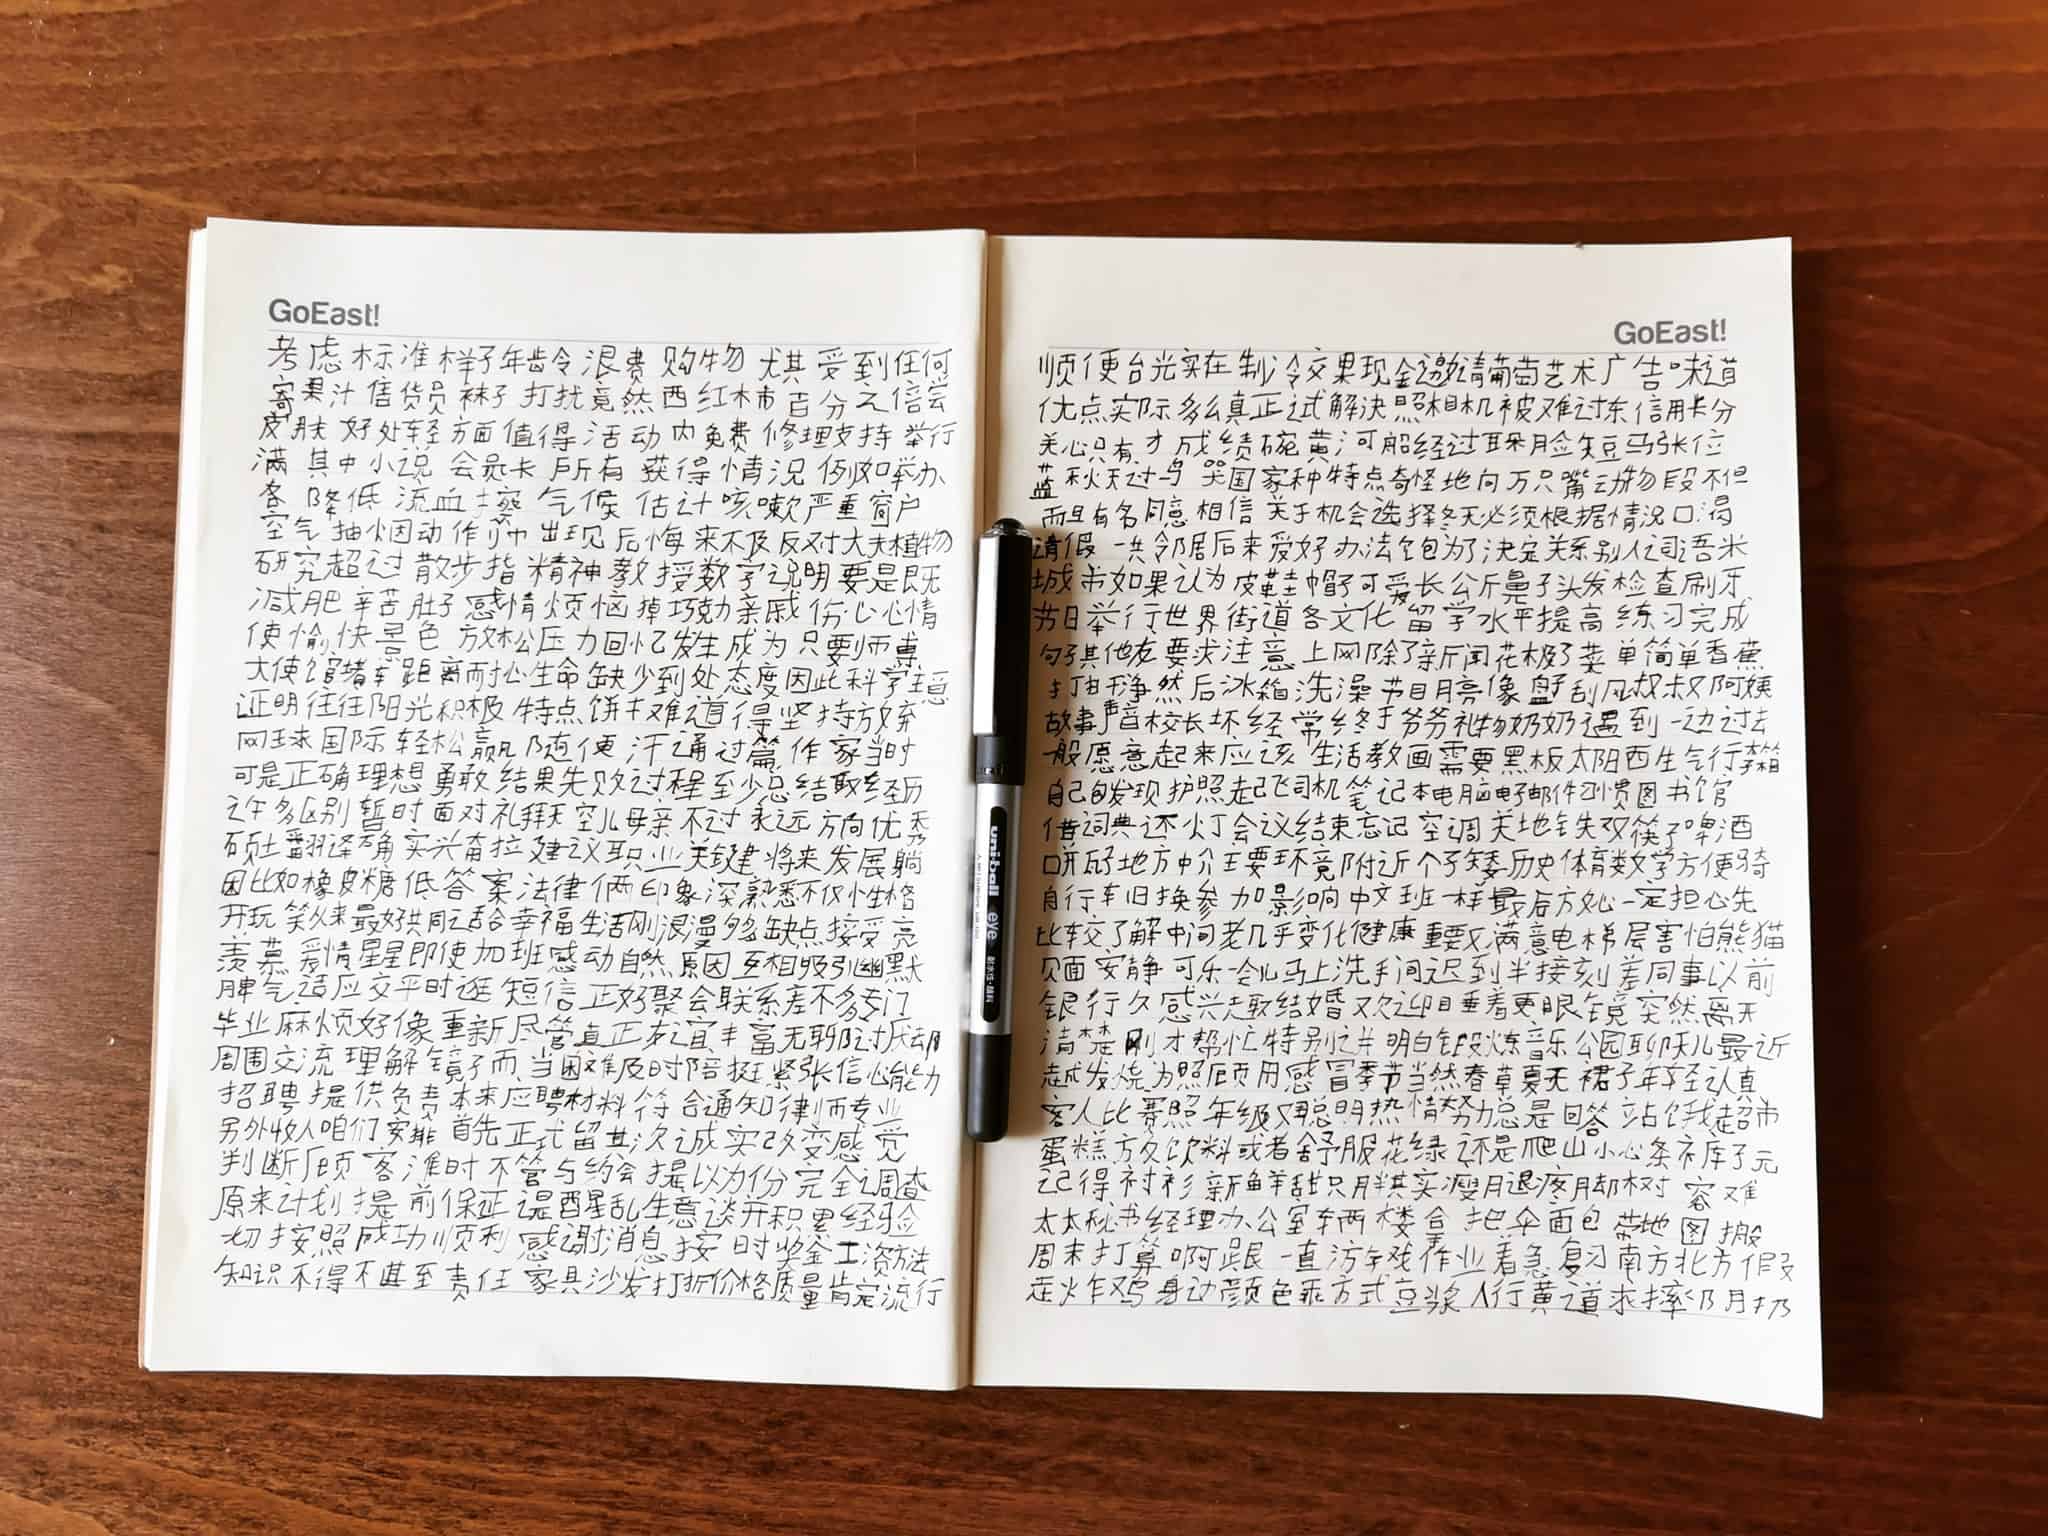 GoEast!
考虑标准样子年龄浪费购物尤其受到任何
寄果汁售货员袜子打扰竟然西红柿百分之信尝
皮肤好处轻方面值得活动内免费修理支持举行
满其中小说会员长所有获得情况例如举办
客降低流血擦气候估计咳嗽严重窗户
空气抽烟动作命出现后悔来不及反对大夫植物
研究超过散步指精神教授数字说明要是既
减肥辛苦肚子感情烦恼掉巧克力亲戚伤心心情
使愉快景色放松压力回忆发生成为只要师专
大使馆堵车距离耐心生命缺少到处态度因此科学主意
证明往往阳光积极特点饼干难道得坚持放弃
网球国际轻松赢随便汗通过篇作家当时
可是正确理想勇敢结果失败过程至少总结取经历
之午多区别暂时面对礼拜天空儿母亲不过永远方向优秀
硕士翻译确实兴奋拉建议职业关键将来发展躺
因比如橡皮糖低答案法律俩印象深熟悉不仅性格
开玩笑从来最好共周之适合幸福生活刚浪漫够缺点接受亮
羡慕爱情星星即使加班感动自然原因互相吸引幽默
脾气适应交平时逛短信正好聚会联系差不多专门
毕业麻烦好像重新尽管真正友谊丰富无聊讨厌却
周围交流理解镜子而当困难及时陪挺紧张信心能力
招聘提供负责本来应聘材料符合通知律师专业
另外收入咱们安排首先正式留其次诚实改变感觉
判断顾客准时不管与约会提以为份完全调查
原来计划提前保证提醒乱生意谈并积累经验
切按照成功顺利感谢消息按时奖金工资方法
知识不得不甚至责任家具沙发打折价格质量肯定流行
GoEast!
顺便台光实在制冷交果现金邀请葡萄艺术广告味道
优点实际多么真正试解决照相机被难过东信用卡分
关心只有才成绩碗黄河船经过耳朵脸矢豆马张位
蓝秋天过鸟哭国家种特点奇怪地向万只嘴动物段不但
而且有名同意相信关于机会选择冬天必须根据情况口渴
请假一共邻居后来爱好办法包为了决定关系别人词语米
城市如果认为皮鞋帽子可爱长公斤鼻子头发检查刷牙
节日举行世界街道各文化留学水平提高练习完成
句子其他友要求注意上网除了新闻花极了菜单简单香蕉
打扫干净然后冰箱洗澡节目月亮像盘子刮风叔叔阿姨
故事声音校长坏经常终于爷爷礼物奶奶遇到一边过去
一般愿意起来应该生活教画需要黑板太阳西生气行李箱
自己的发现护照起飞司机笔记本电脑电子邮件习惯图书馆
借词典还灯会议结束忘记空调关地铁双筷子啤酒
瓶地方中介主要环境附近个子矮历史体育数学方便骑
自行车旧换参加影响中文班一样最后方处一定担心先
比较了解中间老几乎变化健康重要又满意电梯层害怕熊猫
见面安静可乐一会儿马上洗手间迟到半接刻差同事以前
银行久感兴趣结婚又欢迎目垂着更眼镜突然离开
清楚刚才帮忙特别讲明白锻炼音乐公园聊天儿最近
越发烧为照顾用感冒季节当然春草夏天裙子年轻认真
客人比赛照年级又聪明热情努力总是回答站饿超市
蛋糕方久饮料或者舒服花绿还是爬山小心条裤子元
记得衬衫新鲜甜只胖其实瘦腿疼脚树容难
太太秘书经理办公室辆楼合把伞面包带地图搬
周末打算啊跟一直游戏作业着急复习南方北方假
走火炸鸡身动颜色乘方式豆浆人行黄道求摔奶奶
uni-ball eye